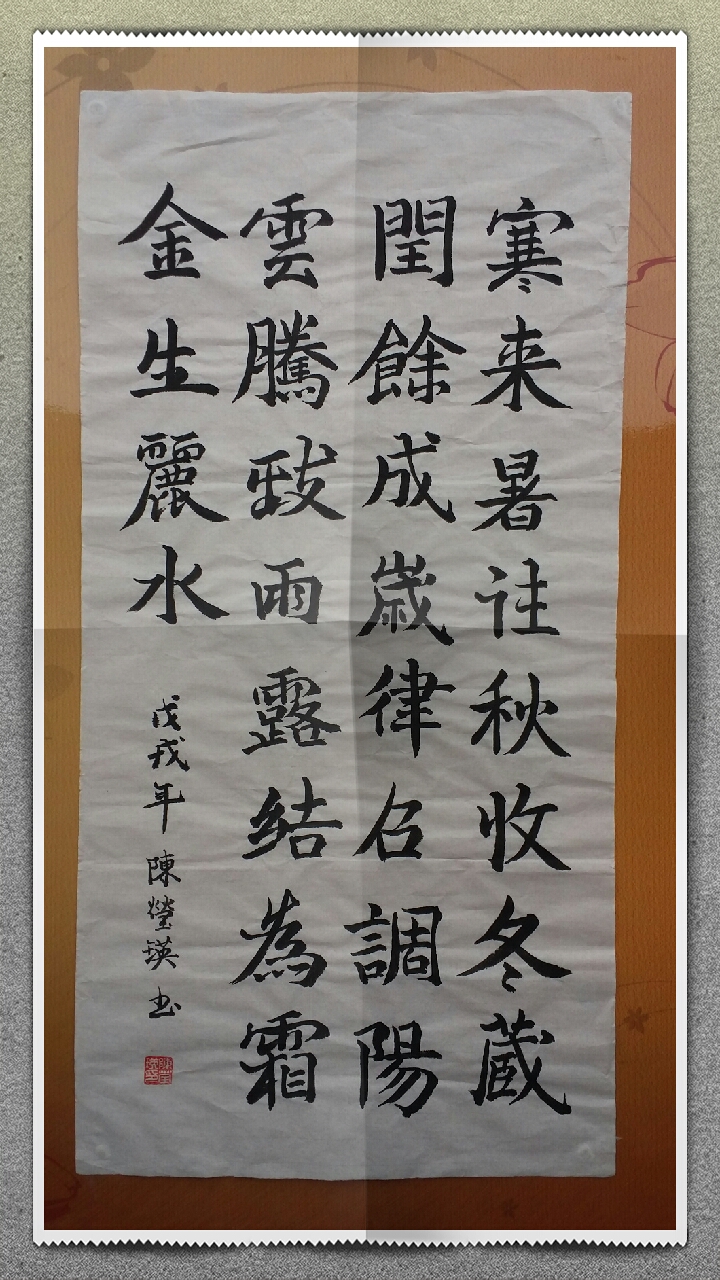 寒来暑往秋收冬蔵
閏餘成歳律召調陽
雲騰致雨露結為霜
金生麗水
戊戌年 陳瑩瑛 书